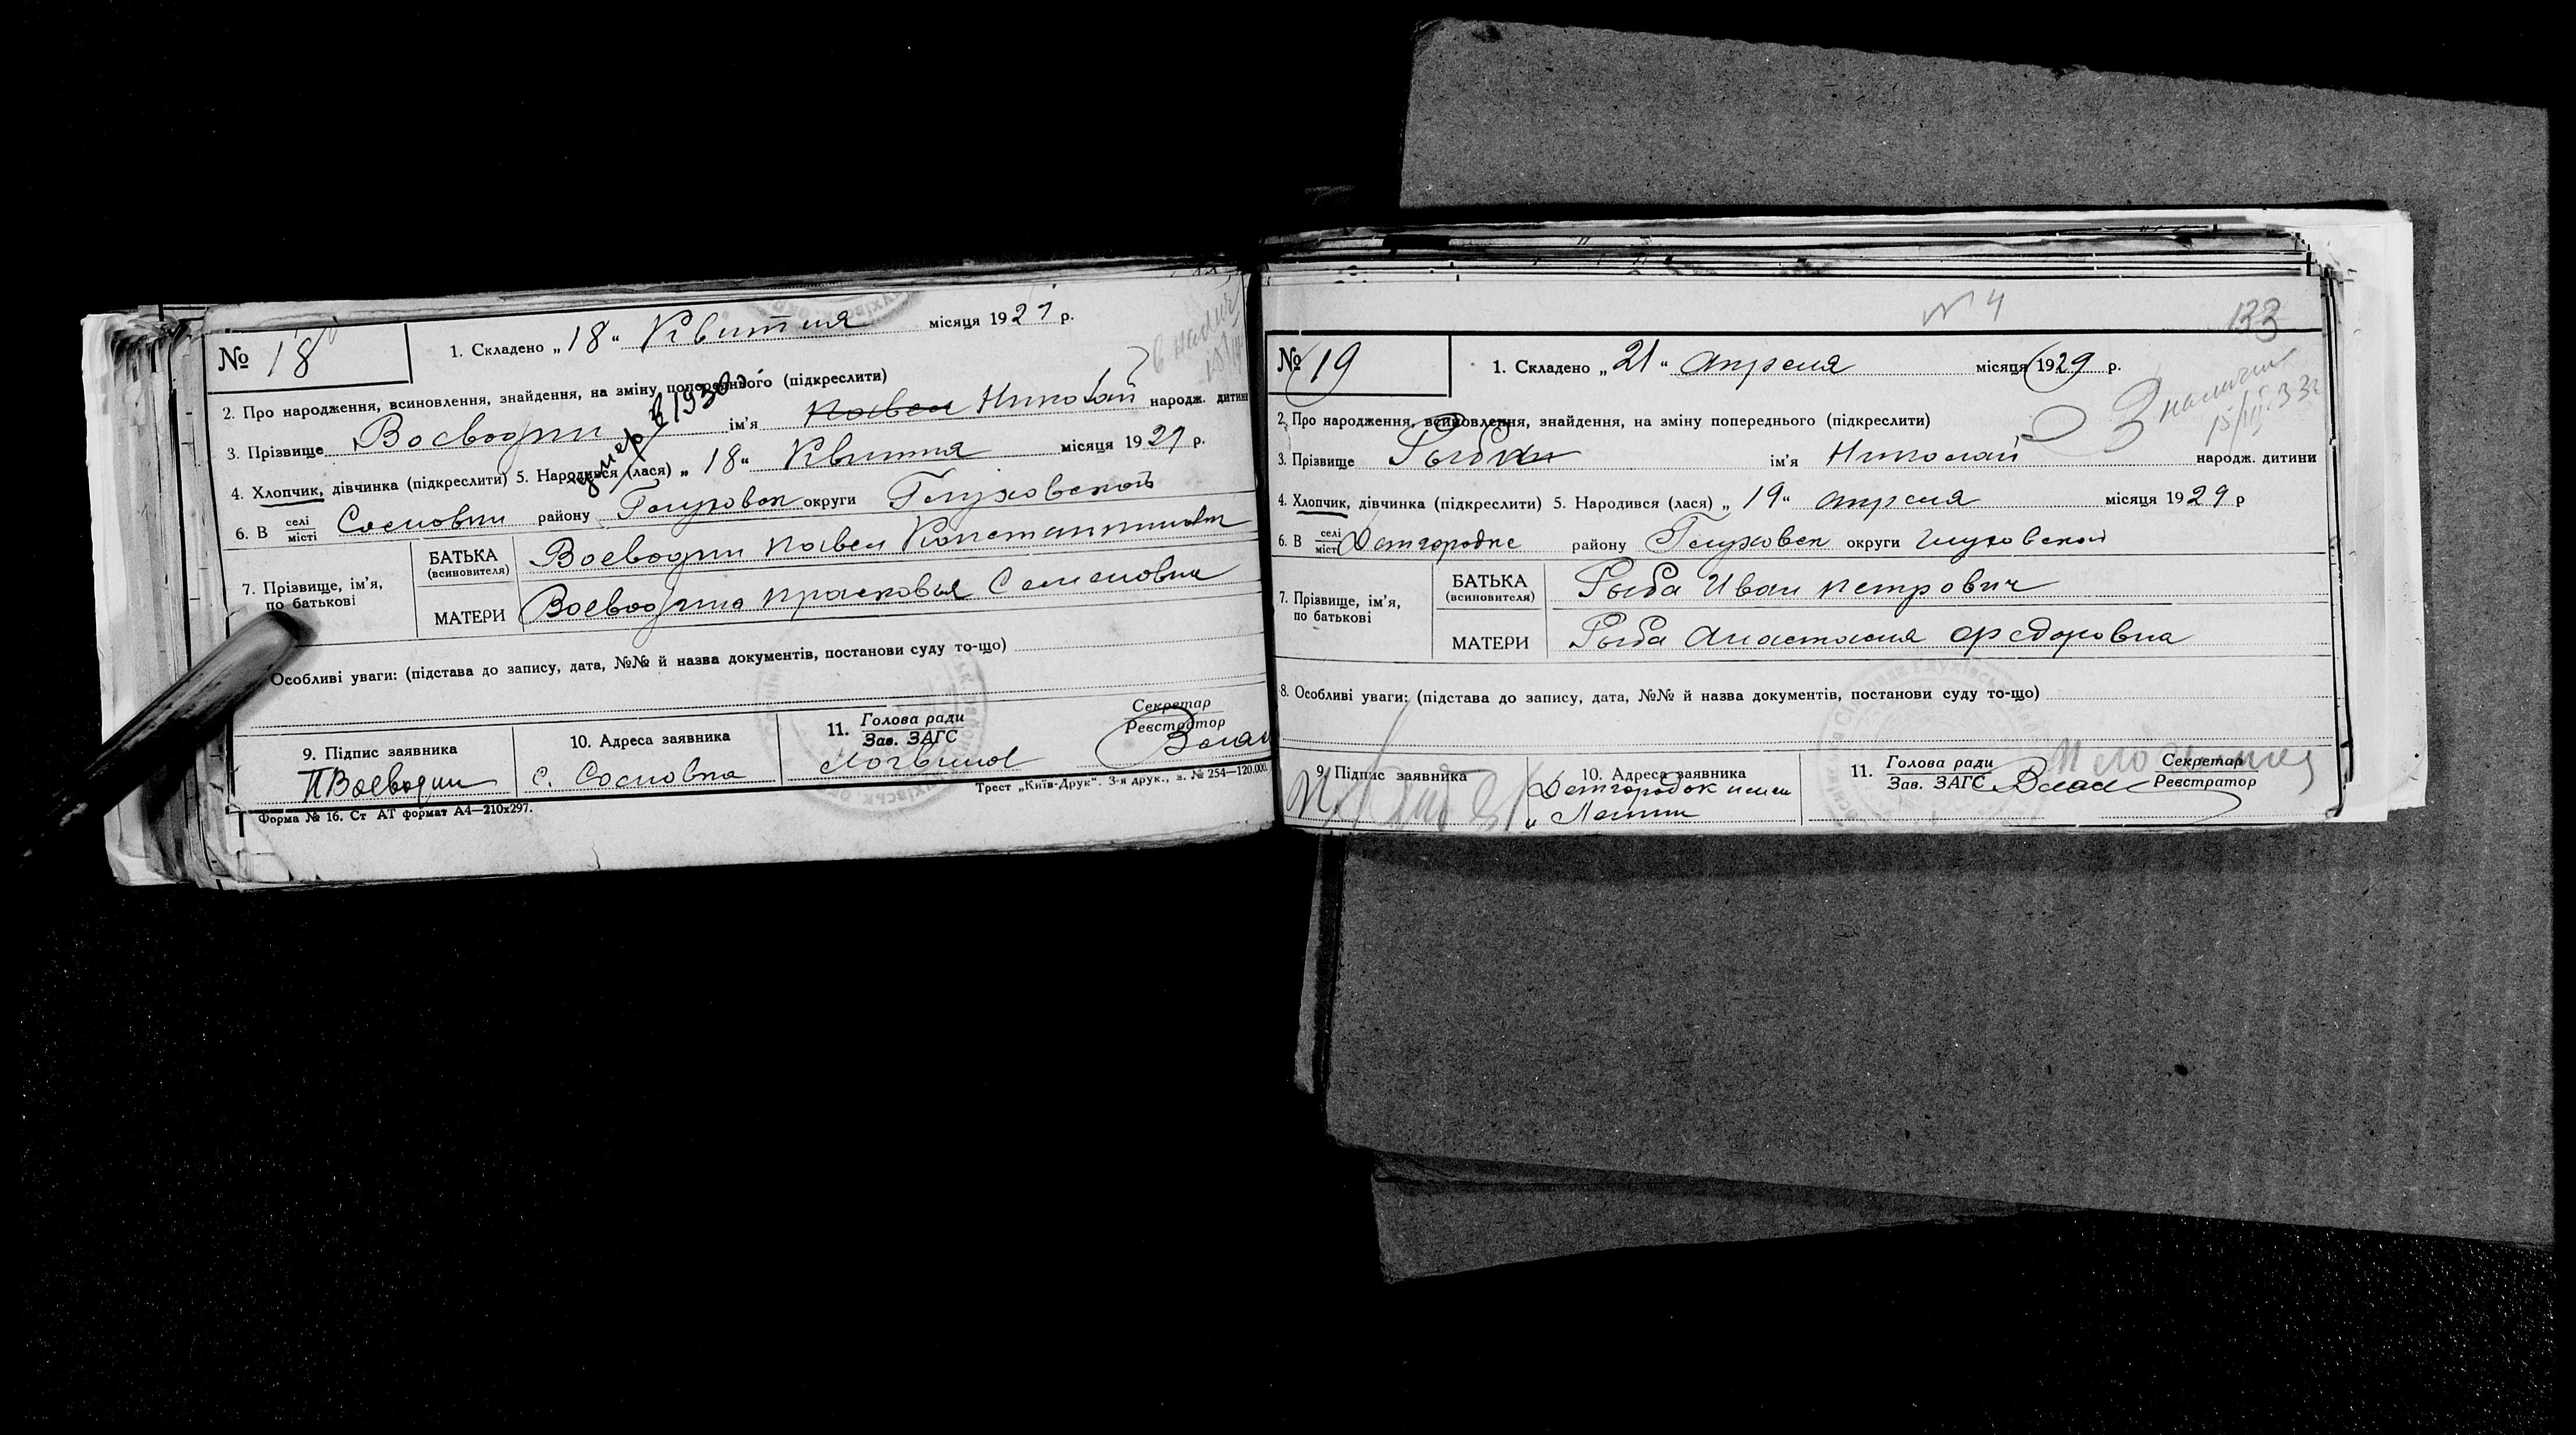 № 18
1. Складено „18“ Квитня місяця 1929 р.
2. Про народження, всиновлення, знайдення, на зміну попереднього (підкреслити)
умер в 1930 г
3. Прізвище Воеводин ім'я Павел Николай народж. дитини
4. Хлопчик, дівчинка (підкреслити) 5. Народився (лася) „18“ Квитня місяця 1929 р.
6. В селі місті Сосновки району Глуховск округи Глуховской
7. Прізвище, ім'я, по батькові
БАТЬКА (всиновителя) Воеводин Павел Константинович
МАТЕРИ Воеводина Прасковья Семеновна
Особливі уваги: (підстава до запису, дата, №№ й назва документів, постанови суду то-що)
9. Підпис заявника
ПВоеводин
10. Адреса заявника
с. Сосновка
11. Голова ради
Зав. ЗАГС
Логвинов
Секретар
Реєстратор
Форма № 16. Ст АТ формат А4—210х297.
Трест „Київ-Друк“. 3-я друк., з. № 254—120.000.
№ 4
133
№ 19
1. Складено „21“ апреля місяця 1929 р.
2. Про народження, всиновлення, знайдення, на зміну попереднього (підкреслити)
3. Прізвище ім'я Николай народж. дитини
4. Хлопчик, дівчинка (підкреслити) 5. Народився (лася) „19“ апреля місяця 1929 р
6. В селі місті Детгородке району Глуховск округи Глуховской
7. Прізвище, ім'я, по батькові
БАТЬКА (всиновителя) Рыба Иван Петрович
МАТЕРИ Рыба Анастасия Федоровна
8. Особливі уваги: (підстава до запису, дата, №№ й назва документів, постанови суду то-що)
9. Підпис заявника
10. Адреса заявника
Детгородок имен
„ Ленин
11. Голова ради
Зав. ЗАГС
Секретар
Реєстратор